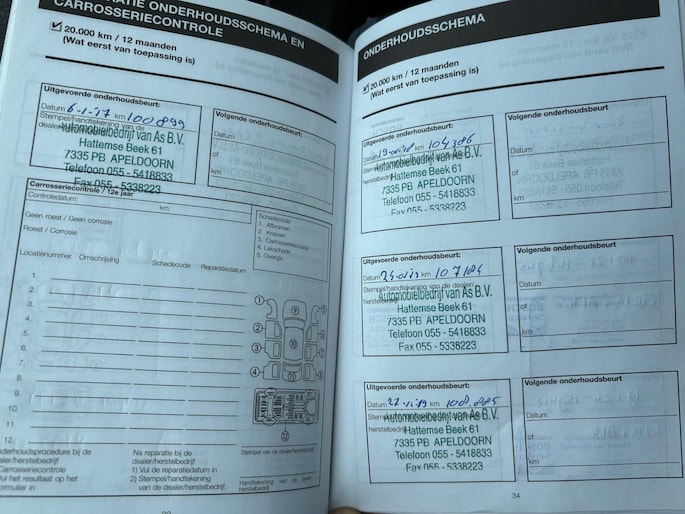 RATIE ONDERHOUDSSCHEMA EN
CARROSSERIECONTROLE
20.000 km / 12 maanden
(Wat eerst van toepassing is)
Uitgevoerde onderhoudsbeurt:
Datum 6-1-17 km 100899
Stempel/handtekening van de
Automobielbedrijf van As B.V.
Hattemse Beek 61
7335 PB APELDOORN
Telefoon 055 - 5418833
Fax 055 - 5338223
Volgende onderhoudsbeurt:
Datum
of
km
Carrosseriecontrole / 12e jaar
Controledatum: km:
Geen roest / Geen corrosie
Roest / Corrosie
Locatienummer. Omschrijving Schadecode Reparatiedatum
Schadecode:
1. Afbramen
2. Krassen
3. Carrosserieschade
4. Lakschade
5. Overige
1.
2.
3.
4.
5.
6.
7.
8.
9.
10.
11.
12.
1
2
3
4
5
6
7
8
9
10
12
derhoudsprocedure bij de
aler/herstelbedrijf
Carrosseriecontrole
Vul het resultaat op het
ormulier in
Na reparatie bij de
dealer/herstelbedrijf
1) Vul de reparatiedatum in
2) Stempel/handtekening
van de dealer/herstelbedrijf
Stempel van de dealer/herstelbedrijf
Handtekening van de dealer/
herstelbedrijf
ONDERHOUDSSCHEMA
20.000 km / 12 maanden
(Wat eerst van toepassing is)
Uitgevoerde onderhoudsbeurt:
Datum km 104386
Automobielbedrijf van As B.V.
Hattemse Beek 61
7335 PB APELDOORN
Telefoon 055 - 5418833
Fax 055 - 5338223
Volgende onderhoudsbeurt
Datum
of
km
Uitgevoerde onderhoudsbeurt:
Datum km 107184
Stempel/handtekening van de dealer/
herstelbedrijf
Automobielbedrijf van As B.V.
Hattemse Beek 61
7335 PB APELDOORN
Telefoon 055 - 5418833
Fax 055 - 5338223
Volgende onderhoudsbeurt
Datum
of
km
Uitgevoerde onderhoudsbeurt:
Datum km 108.885
Automobielbedrijf van As B.V.
Hattemse Beek 61
7335 PB APELDOORN
Telefoon 055 - 5418833
Fax 055 - 5338223
Volgende onderhoudsbeurt
Datum
of
km
34